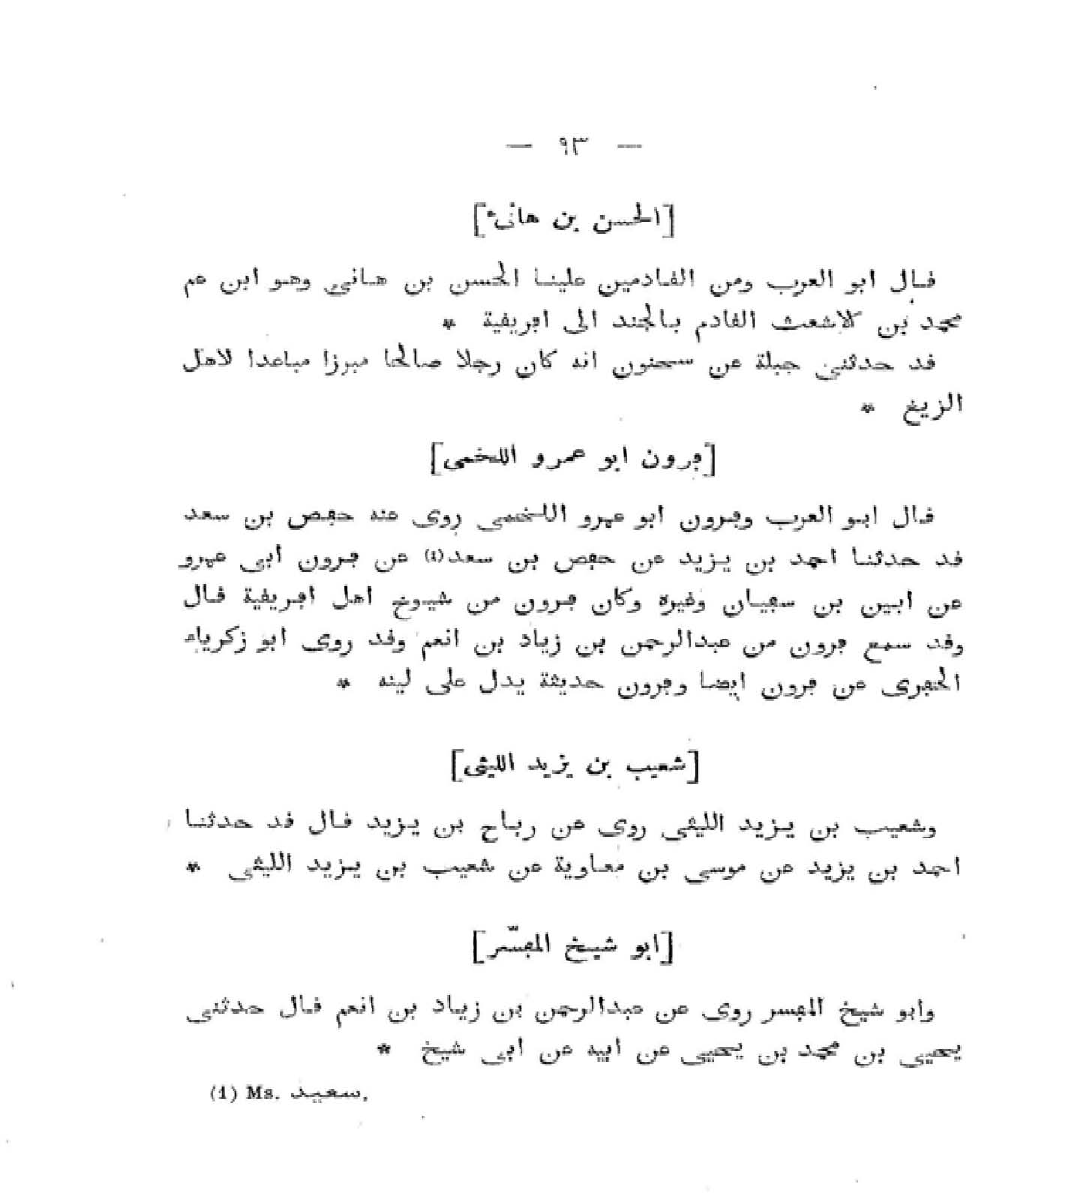 — ٩٣ —
[الحسن بن هانئ]
قال ابو العرب ومن القادمين علينا الحسن بن هاني وهو ابن عم
محمد بن الاشعث القادم بالجند الى افريقية *
قد حدثني جبلة عن سحنون انه كان رجلا صالحا مبرزا مباعدا لاهل
الزيغ *
[فرون ابو عمرو اللخمى]
قال ابو العرب وفرون ابو عمرو اللخمى روى عنه حفص بن سعد
قد حدثنا احمد بن يزيد عن حفص بن سعد(1) عن فرون أبى عمرو
عن ابين بن سفيان وغيره وكان فرون من شيوخ اهل افريقية قال
وقد سمع فرون من عبدالرحمن بن زياد بن انعم وقد روى ابو زكرياء
الحفرى عن فرون ايضا وفرون حديثة يدل على لينه *
[شعيب بن يزيد الليثى]
وشعيب بن يزيد الليثى روى عن رباح بن يزيد قال قد حدثنا
احمد بن يزيد عن موسى بن معاوية عن شعيب بن يزيد الليثى *
[ابو شيخ المفسّر]
وابو شيخ المفسر روى عن عبدالرحمن بن زياد بن انعم قال حدثنى
يحيى بن محمد بن يحيى عن ابيه عن ابى شيخ *
(1) Ms. سعيد.